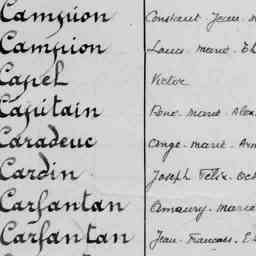 Campion Constant Jean
Campion Louis Marie
Capel Victor
Capitain René Marie Alex
Caradeuc Ange Marie
Cardin Joseph Félix Oct
Carfantan Amaury Marie
Carfantan Jean François